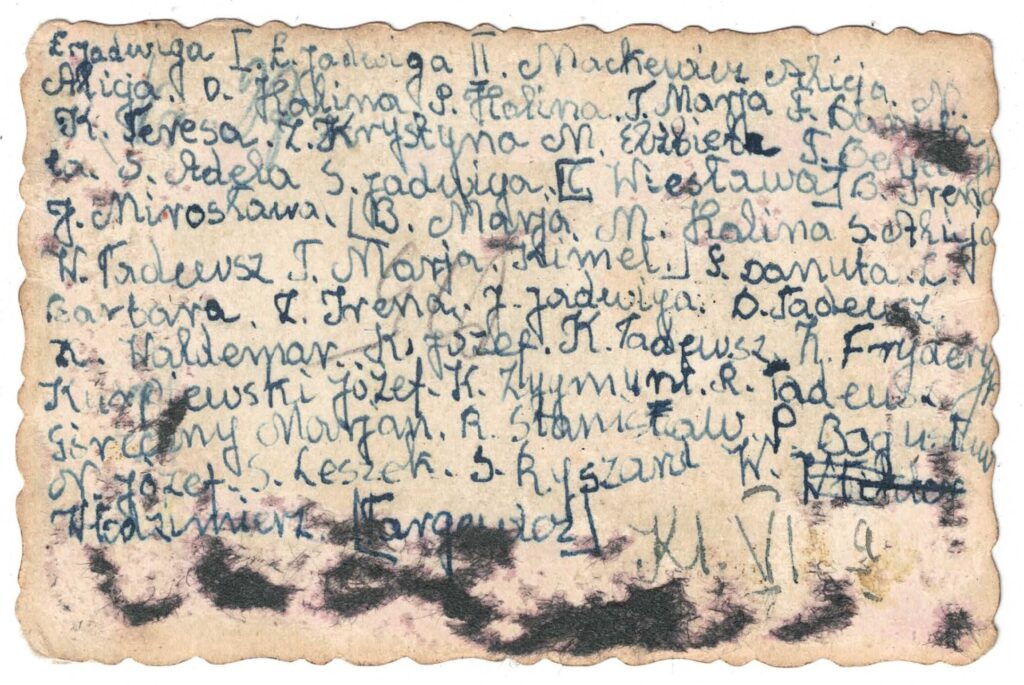 Ł. Jadwiga I. Ł. Jadwiga II. Mackewicz Alicja. N.
Alicja. D. Halina P. Halina. T. Marja F. Danuta
K. Teresa. Z. Krystyna M. Elżbieta T.
S. Adela S. Jadwiga. [I Wiesława] B. Irena
J. Mirosława. [B. Marja. M. Halina S. Alicja
W. Tadeusz T. Marja. Kimel.] P. Danuta. Z.
Barbara. Z. Irena. J. Jadwiga. D. Tadeusz.
K. Waldemar. K. Józef. K. Tadeusz. K. Fryderyk
Józef. K. Zygmunt. R. Tadeusz
Marjan. R. Stanisław. P. Bogusław
N. Józef. S. Leszek. S. Ryszard W.
Włodzimierz [Targowicz] Kl. VI a